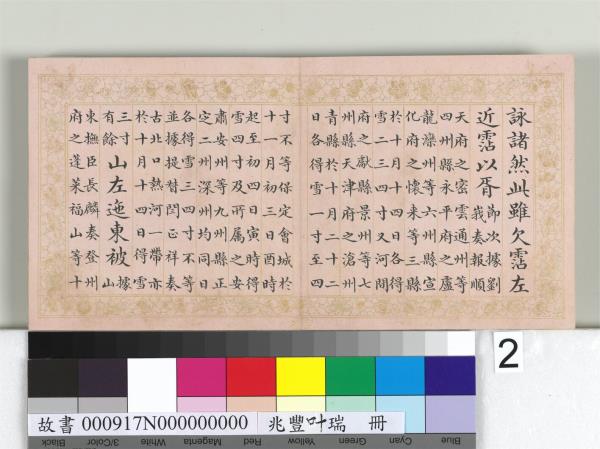 詠諸然此雖欠霑左
近霑以胥即次據劉
我奏報順
天府之密雲通州等
四州縣永平府之盧
龍灤州等六州縣宣
化府之懷來等三縣
於十月十四日各得
雪二三四寸又河間
府之獻縣景州等七
州縣天津府之滄州
青縣於十月二十二
日各得雪一寸至四
寸不等保定會城於
十一月初三日酉時
起至初四日寅時得
雪四寸及所屬之安
肅安州等九州縣正
定二州深州均同日
各得雪三四寸不等
並據提督閆正祥奏
古北口熱河一帶亦
於十月十四日得雪
三寸
有餘山左迤東被據
山
東撫臣長麟奏登州
府之蓬萊福山等十
2
故書 000917N000000000 兆豐叶瑞 冊
Black 3/Color White Magenta Red Yellow Green Cyan Blue